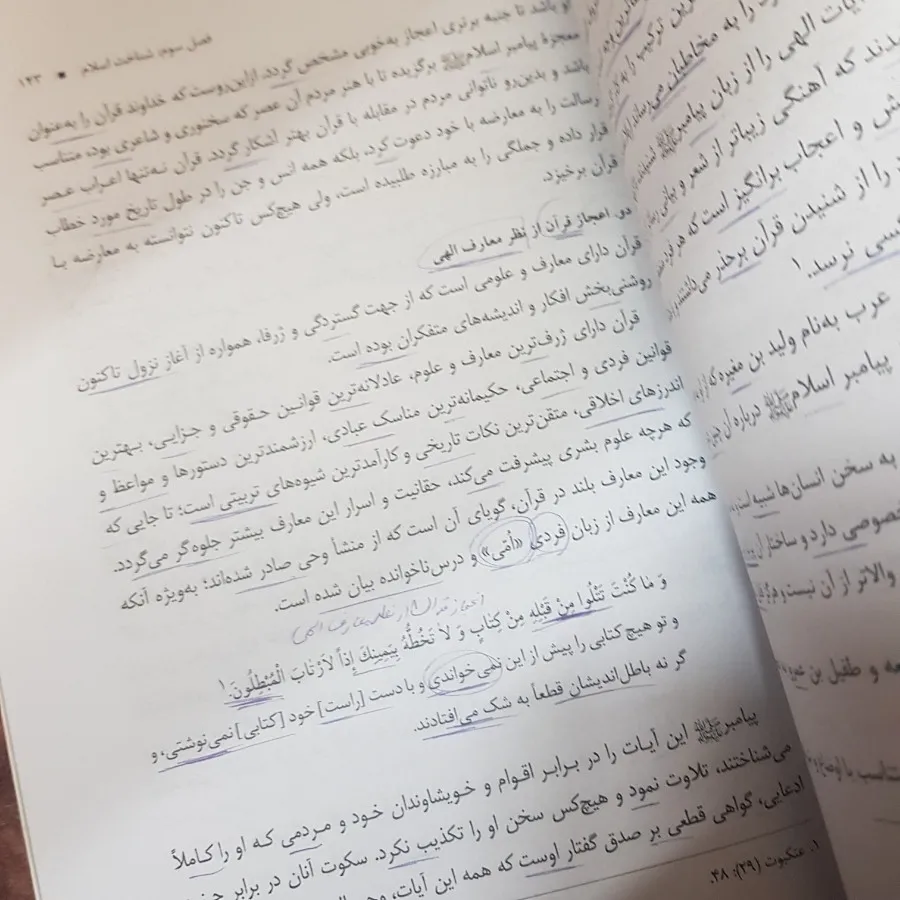 فصل سوم: شناخت اسلام ■ ۱۴۳
باشد تا جنبه برتری اعجاز به‌خوبی مشخص گردد. ازاین‌روست که خداوند قرآن را به‌عنوان
معجزهٔ پیامبر اسلام ﷺ برگزیده تا با هنر مردم آن عصر که سخنوری و شاعری بود، متناسب
باشد و بدین‌رو ناتوانی مردم در مقابله با قرآن بهتر آشکار گردد. قرآن نه‌تنها اعراب عصر
رسالت را به معارضه با خود دعوت کرد، بلکه همه انس و جن را در طول تاریخ مورد خطاب
قرار داده و جملگی را به مبارزه طلبیده است، ولی هیچ‌کس تاکنون نتوانسته به معارضه با
قرآن برخیزد.
دو. اعجاز قرآن از نظر معارف الهی
قرآن دارای معارف و علومی است که از جهت گستردگی و ژرفا، همواره از آغاز نزول تاکنون
روشنی‌بخش افکار و اندیشه‌های متفکران بوده است.
قرآن دارای ژرف‌ترین معارف و علوم، عادلانه‌ترین قوانین حقوقی و جزایی، بهترین
قوانین فردی و اجتماعی، حکیمانه‌ترین مناسک عبادی، ارزشمندترین دستورها و مواعظ و
اندرزهای اخلاقی، متقن‌ترین نکات تاریخی و کارآمدترین شیوه‌های تربیتی است؛ تا جایی که
که هرچه علوم بشری پیشرفت می‌کند، حقانیت و اسرار این معارف بیشتر جلوه‌گر می‌گردد.
وجود این معارف بلند در قرآن، گویای آن است که از منشأ وحی صادر شده‌اند؛ به‌ویژه آنکه
همه این معارف از زبان فردی «اُمّی» و درس‌ناخوانده بیان شده است.
اعجاز قرآن از نظر معارف الهی
وَ مَا كُنْتَ تَتْلُوا مِنْ قَبْلِهِ مِنْ كِتَابٍ وَ لاَ تَخُطُّهُ بِيَمِينِكَ إِذاً لاَرْتَابَ الْمُبْطِلُونَ.۱
و تو هیچ کتابی را پیش از این نمی‌خواندی و با دست [راست] خود [کتابی] نمی‌نوشتی، و
گر نه باطل‌اندیشان قطعاً به شک می‌افتادند.
پیامبر ﷺ این آیات را در برابر اقوام و خویشاوندان خود و مردمی که او را کاملاً
می‌شناختند، تلاوت نمود و هیچ‌کس سخن او را تکذیب نکرد. سکوت آنان در برابر
ادعایی، گواهی قطعی بر صدق گفتار اوست که همه این آیات،
۱. عنکبوت (۲۹): ۴۸.
را به مخاطبان می‌رساند
آیات الهی را از زبان پیامبر ﷺ
دند که آهنگی زیباتر از شعر و
و اعجاب برانگیز است که هر
را از شنیدن قرآن برحذر می‌داشتند
کسی نرسد.۱
عرب به‌نام ولید بن مغیره که
پیامبر اسلام ﷺ درباره آن
به سخن انسان‌ها شبیه است
خصوصی دارد و ساختار آن
والاتر از آن نیست و
و طفیل بن